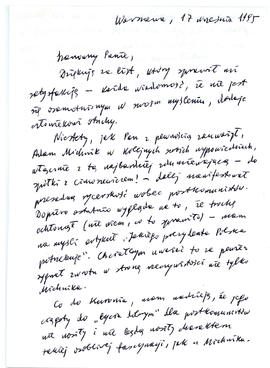 Warszawa, 17 września 1995
Szanowny Panie,
Dziękuję za list, który sprawił mi
satysfakcję – każda wiadomość, że nie jest
się osamotnionym w swoim myśleniu, dodaje
człowiekowi otuchy.
Niestety, jak Pan z pewnością zauważył,
Adam Michnik w kolejnych swoich wypowiedziach,
włącznie z tą najbardziej zdumiewającą – do
spółki z Cimoszewiczem! – dalej manifestował
przesadną rycerskość wobec postkomunistów.
Dopiero ostatnio wygląda na to, że trochę
ochłonął (nie wiem, co to sprawiło) – mam
na myśli artykuł "Jakiego prezydenta Polska
potrzebuje". Chciałbym wierzyć to za pewien
sygnał zwrotu w stronę rzeczywistości nie tylko
Michnika.
Co do Kuronia, mam nadzieję, że jego
ciągoty do "bycia dobrym" dla postkomunistów
nie noszą i nie będą nosiły charakteru
takiej osobliwej fascynacji, jak u Michnika.